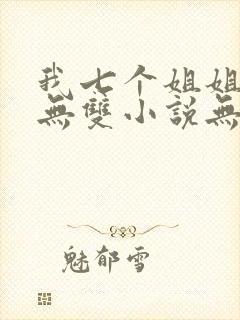 我七个姐姐
無雙小説無
魅郁雪